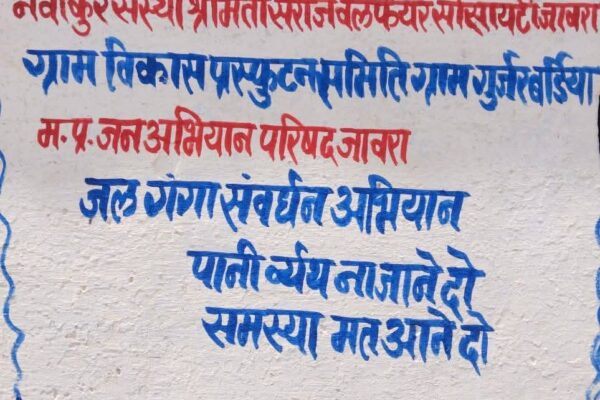 नवांकुर संस्था श्रीमती सरोज वेलफेयर सोसायटी जावरा
ग्राम विकास प्रस्फुटन समिति ग्राम गुर्जर बर्डिया
म.प्र. जन अभियान परिषद जावरा
जल गंगा संवर्धन अभियान
पानी र्व्यथ ना जाने दो
समस्या मत आने दो